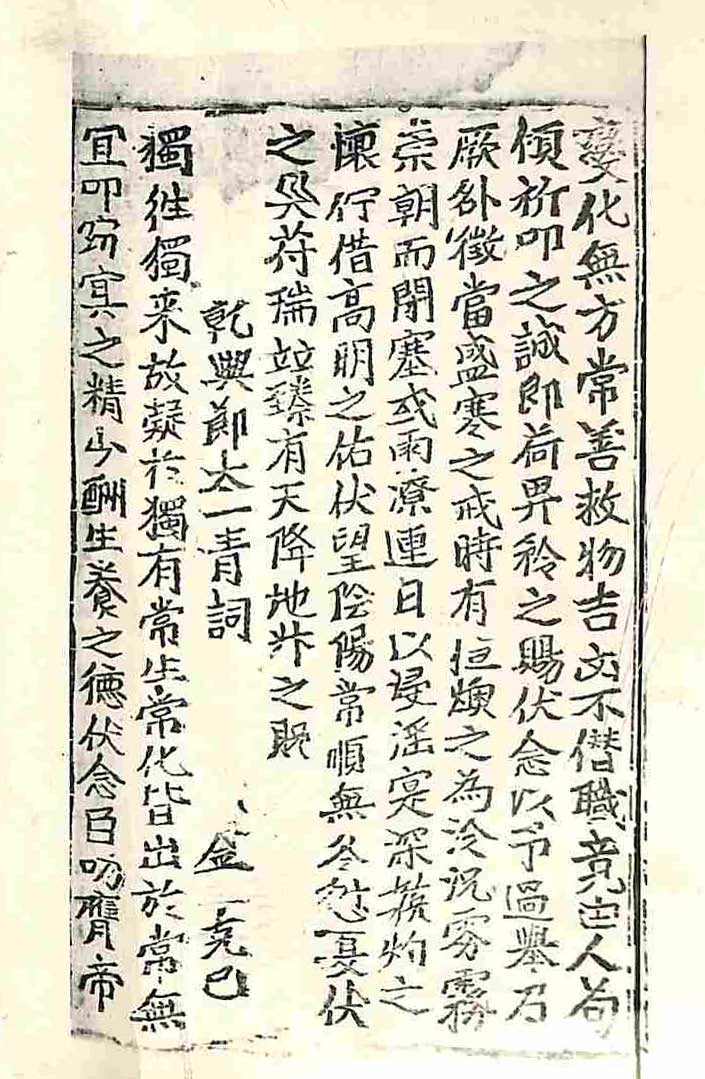 變化無方常善救物吉凶不僭職竟由人苟
傾祈叩之誠即荷畀矜之賜伏念以予過擧乃
厥咎徵當盛寒之戒時有恒燠之為沴況雰霧
崇朝而閉塞或雨潦連日以浸淫寔深灼之
懷佇借高明之佑伏望陰陽常順無冬愆夏伏
之災符瑞竝臻有天降地升之貺
乾興節太一青詞 金克己
獨往獨来故凝於獨有常生常化皆出於常無
宜叩窈冥之精少酬生養之德伏念臣叨膺帝